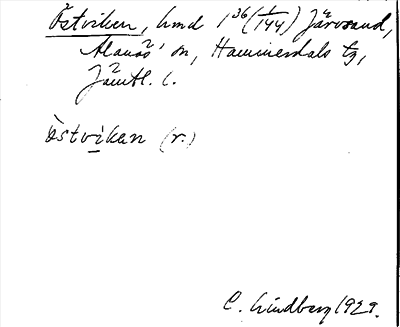 Östviken, hmd 1³⁶(1/144) Järvsand,
Alanäs sn, Hammerdals tg,
Jämtl. l.
östvikan (r.)
C. Lindberg 1929.